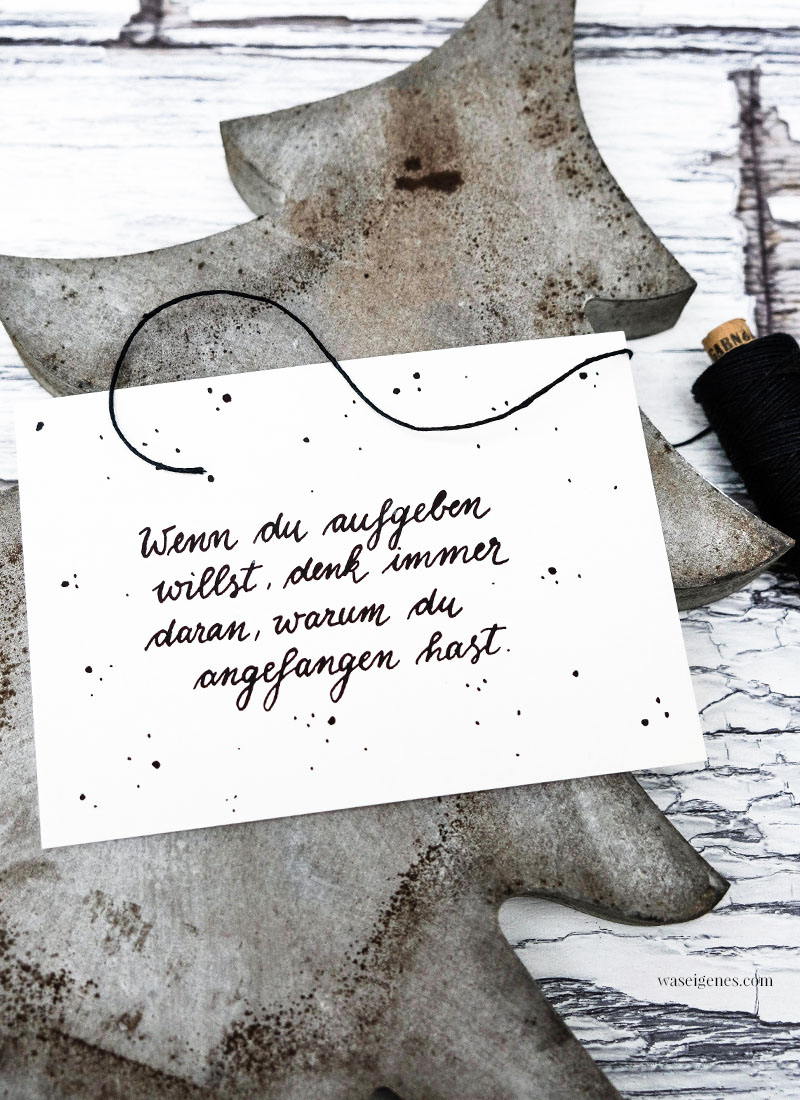 Wenn du aufgeben
willst, denk immer
daran, warum du
angefangen hast.
waseigenes.com